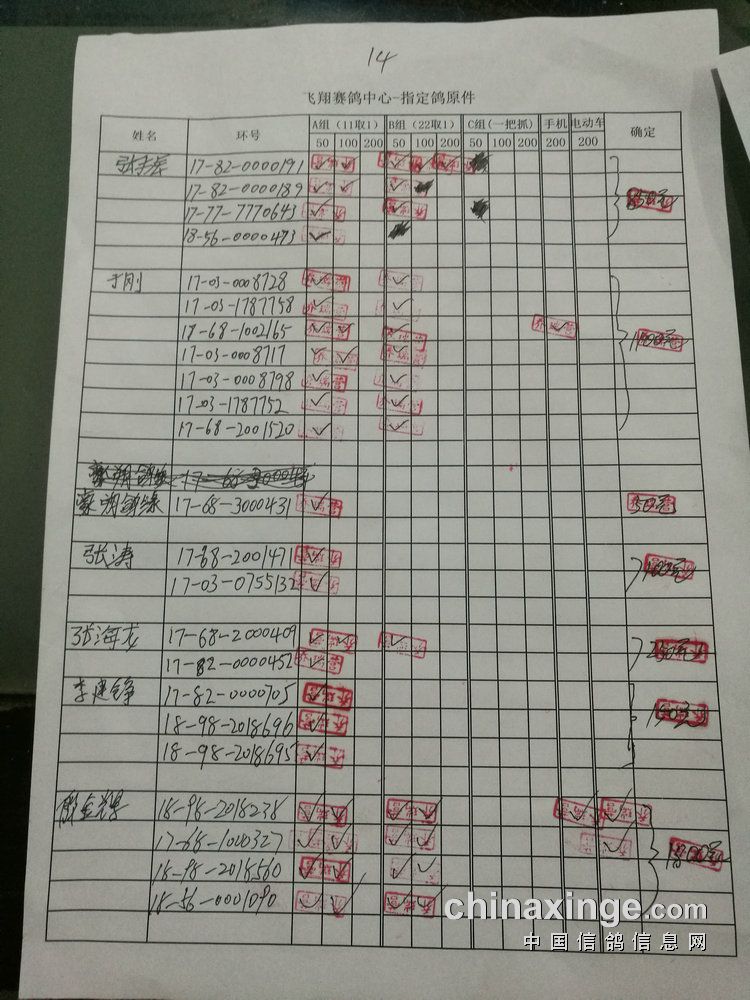 14
飞翔赛鸽中心-指定鸽原件
姓名 环号 A组（11取1） B组（22取1） C组(一把抓) 手机 电动车 确定
50 100 200 50 100 200 50 100 200 200 200
17-82-0000191
17-82-0000189
17-77-7770643
18-56-0000473
于刚 17-03-0008728
17-03-1787758
18-68-1002165
17-03-0008717
17-03-0008798
17-03-1787752
17-68-2001520
17-68-3000431 50元
张涛 17-68-2001471
17-03-0755132
张海龙 17-68-2000409
17-82-0000452
李建铮 17-82-0000705
18-98-2018696
18-98-2018695
18-98-2018238
17-68-1000327
18-98-2018560
18-56-0001090
chinaxinge.com
中国信鸽信息网